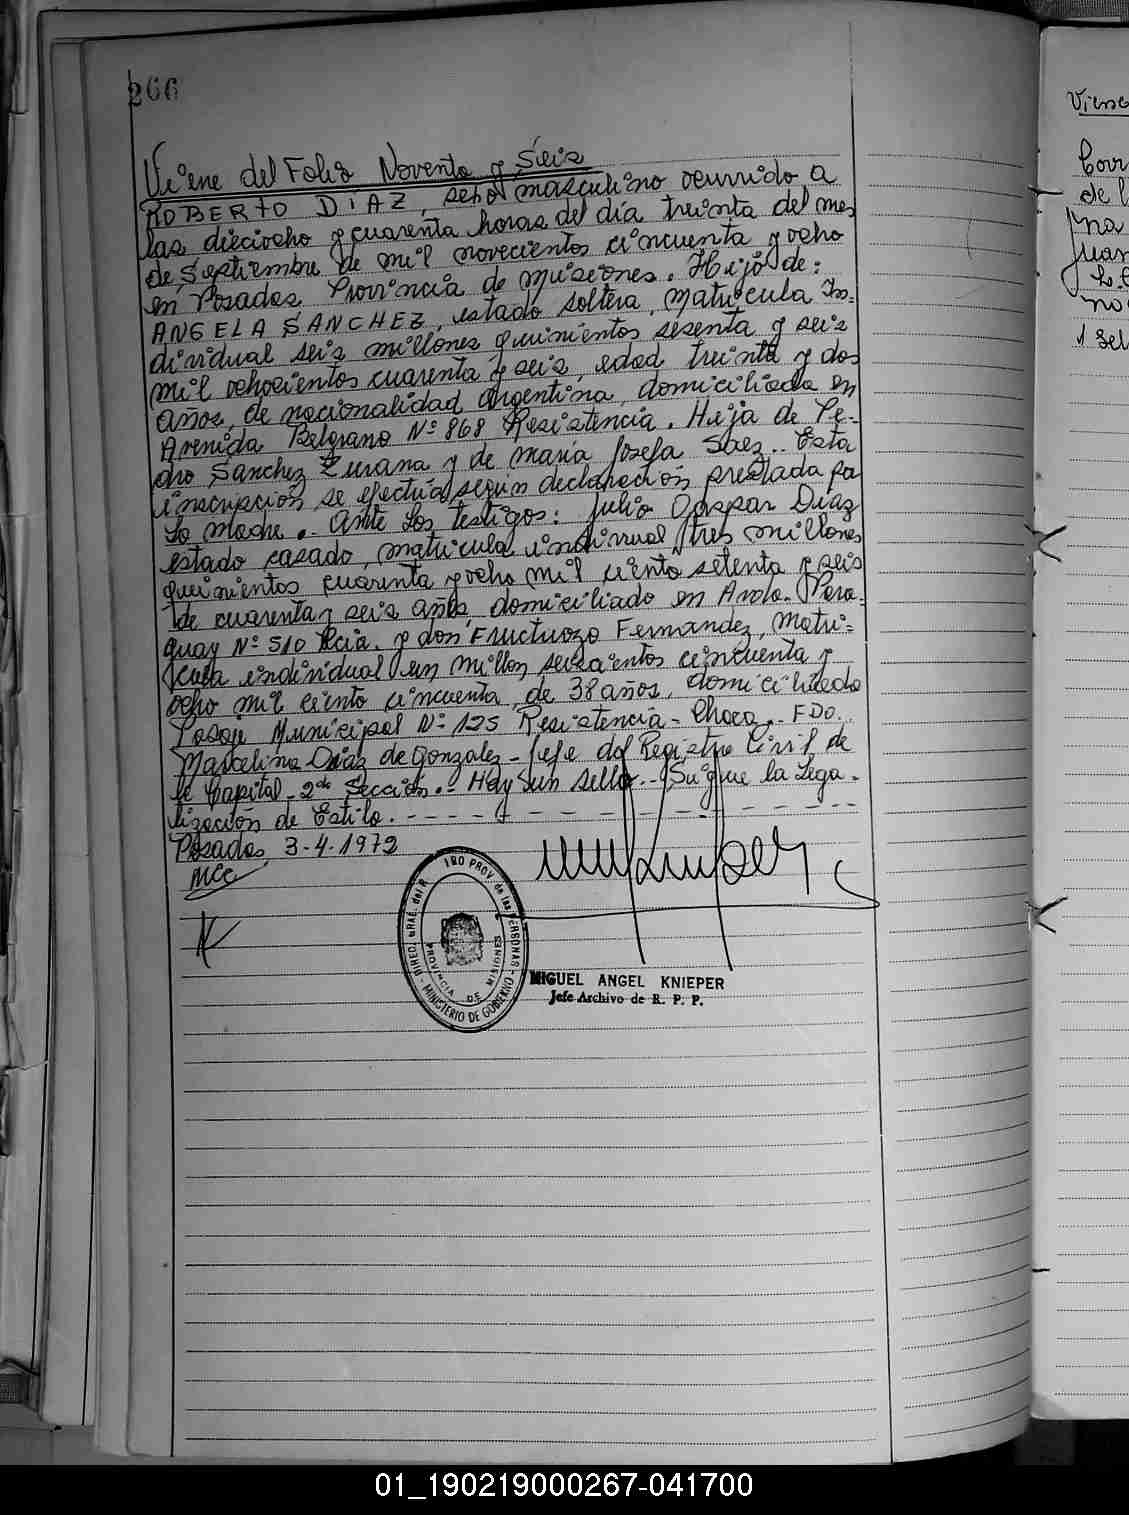 266
Viene del Folio Noventa y Seis
ROBERTO DIAZ, sexo masculino ocurrido a
las dieciocho y cuarenta horas del día treinta del mes
de Septiembre de mil novecientos cincuenta y ocho
en Posadas Provincia de Misiones. Hijo de:
ANGELA SANCHEZ, estado soltera, matricula In=
dividual seis millones quinientos sesenta y seis
mil ochocientos cuarenta y seis, edad treinta y dos
años, de nacionalidad argentina, domiciliada en
Avenida Belgrano Nº 868 Resistencia. Hija de Pe-
dro Sanchez Zurana y de maria Josefa Saez.. Esta
inscripcion se efectúa según declaración prestada por
la madre.. Ante los testigos: Julio Gaspar Diaz
estado casado, matricula individual tres millones
quinientos cuarenta y ocho mil ciento setenta y seis
de cuarenta y seis años, domiciliado en Avda. Para-
guay Nº 510 Rcia. y don Fructuozo Fernandez, matri=
cula individual un millon seiscientos cincuenta y
ocho mil ciento cincuenta, de 38 años, domiciliado
Pasaje Municipal Nº 125 Resistencia - Chaco.. FDO..
Marcelina Diaz de Gonzalez - Jefe del Registro Civil de
la Capital - 2da Sección.- Hay un sello.. Sigue la Lega-
lización de Estilo.
Posadas, 3-4-1972
MCC
PROV. de las PERSONAS - MINISTERIO DE GOBIERNO
PROVINCIA DE MISIONES
MIGUEL ANGEL KNIEPER
Jefe Archivo de R. P. P.
Viene
de l
na
Juan
no
1 sel
01_190219000267-041700